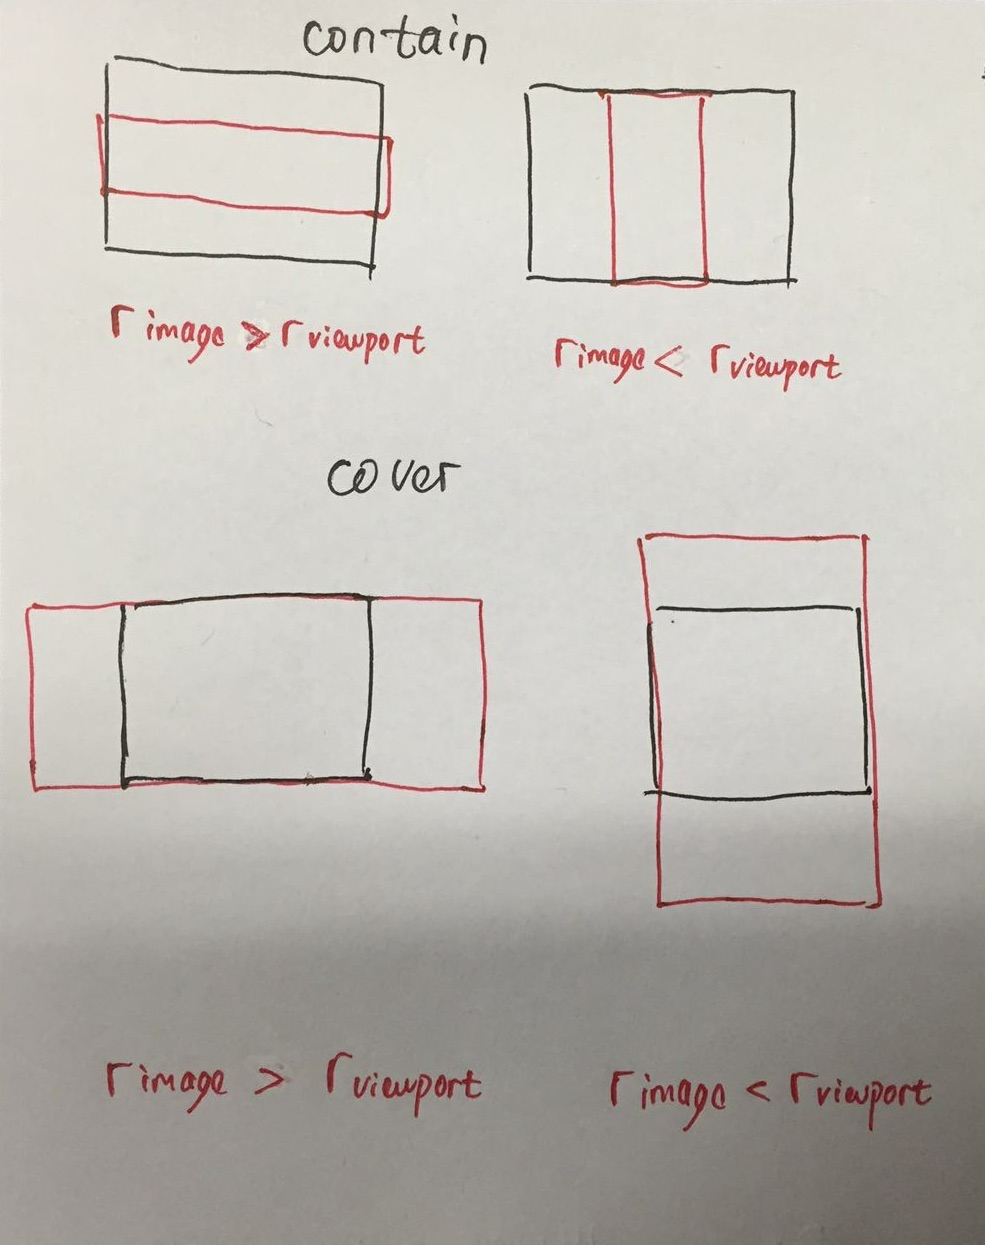 contain
r image > r viewport
r image < r viewport
cover
r image > r viewport
r image < r viewport